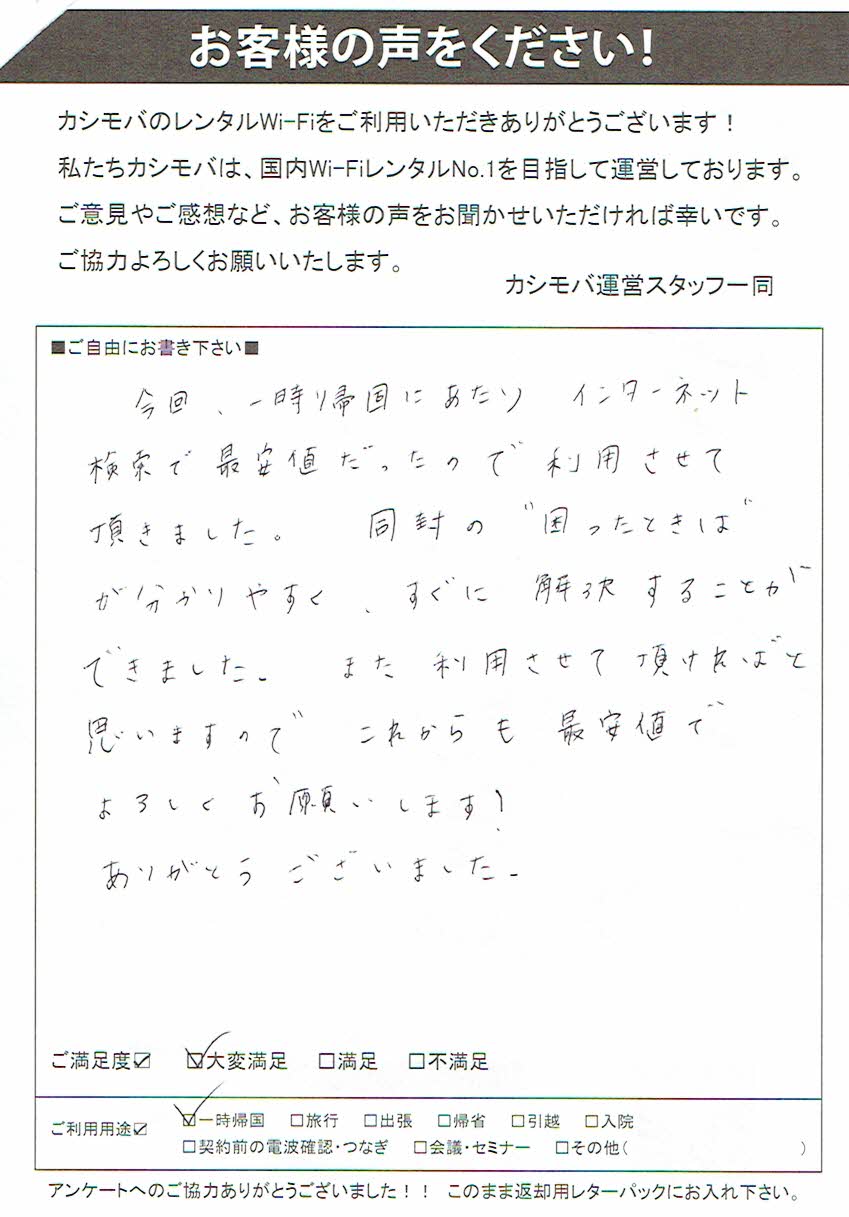 お客様の声をください!
カシモバのレンタルWi-Fiをご利用いただきありがとうございます！
私たちカシモバは、国内Wi-FiレンタルNo.1を目指して運営しております。
ご意見やご感想など、お客様の声をお聞かせいただければ幸いです。
ご協力よろしくお願いいたします。
カシモバ運営スタッフ一同
■ご自由にお書き下さい■
今回、一時り帰国にあたり インターネット
検索で最安値だったので利用させて
頂きました。 同封の"困ったときは"
が分かりやすく、すぐに解決することが
できました。 また利用させて頂ければと
思いますので これからも最安値で
よろしくお願いします！
ありがとうございました。
ご満足度☑ ☑大変満足 □満足 □不満足
ご利用用途☑ ☑一時帰国 □旅行 □出張 □帰省 □引越 □入院
□契約前の電波確認・つなぎ □会議・セミナー □その他( )
アンケートへのご協力ありがとうございました！！ このまま返却用レターパックにお入れ下さい。